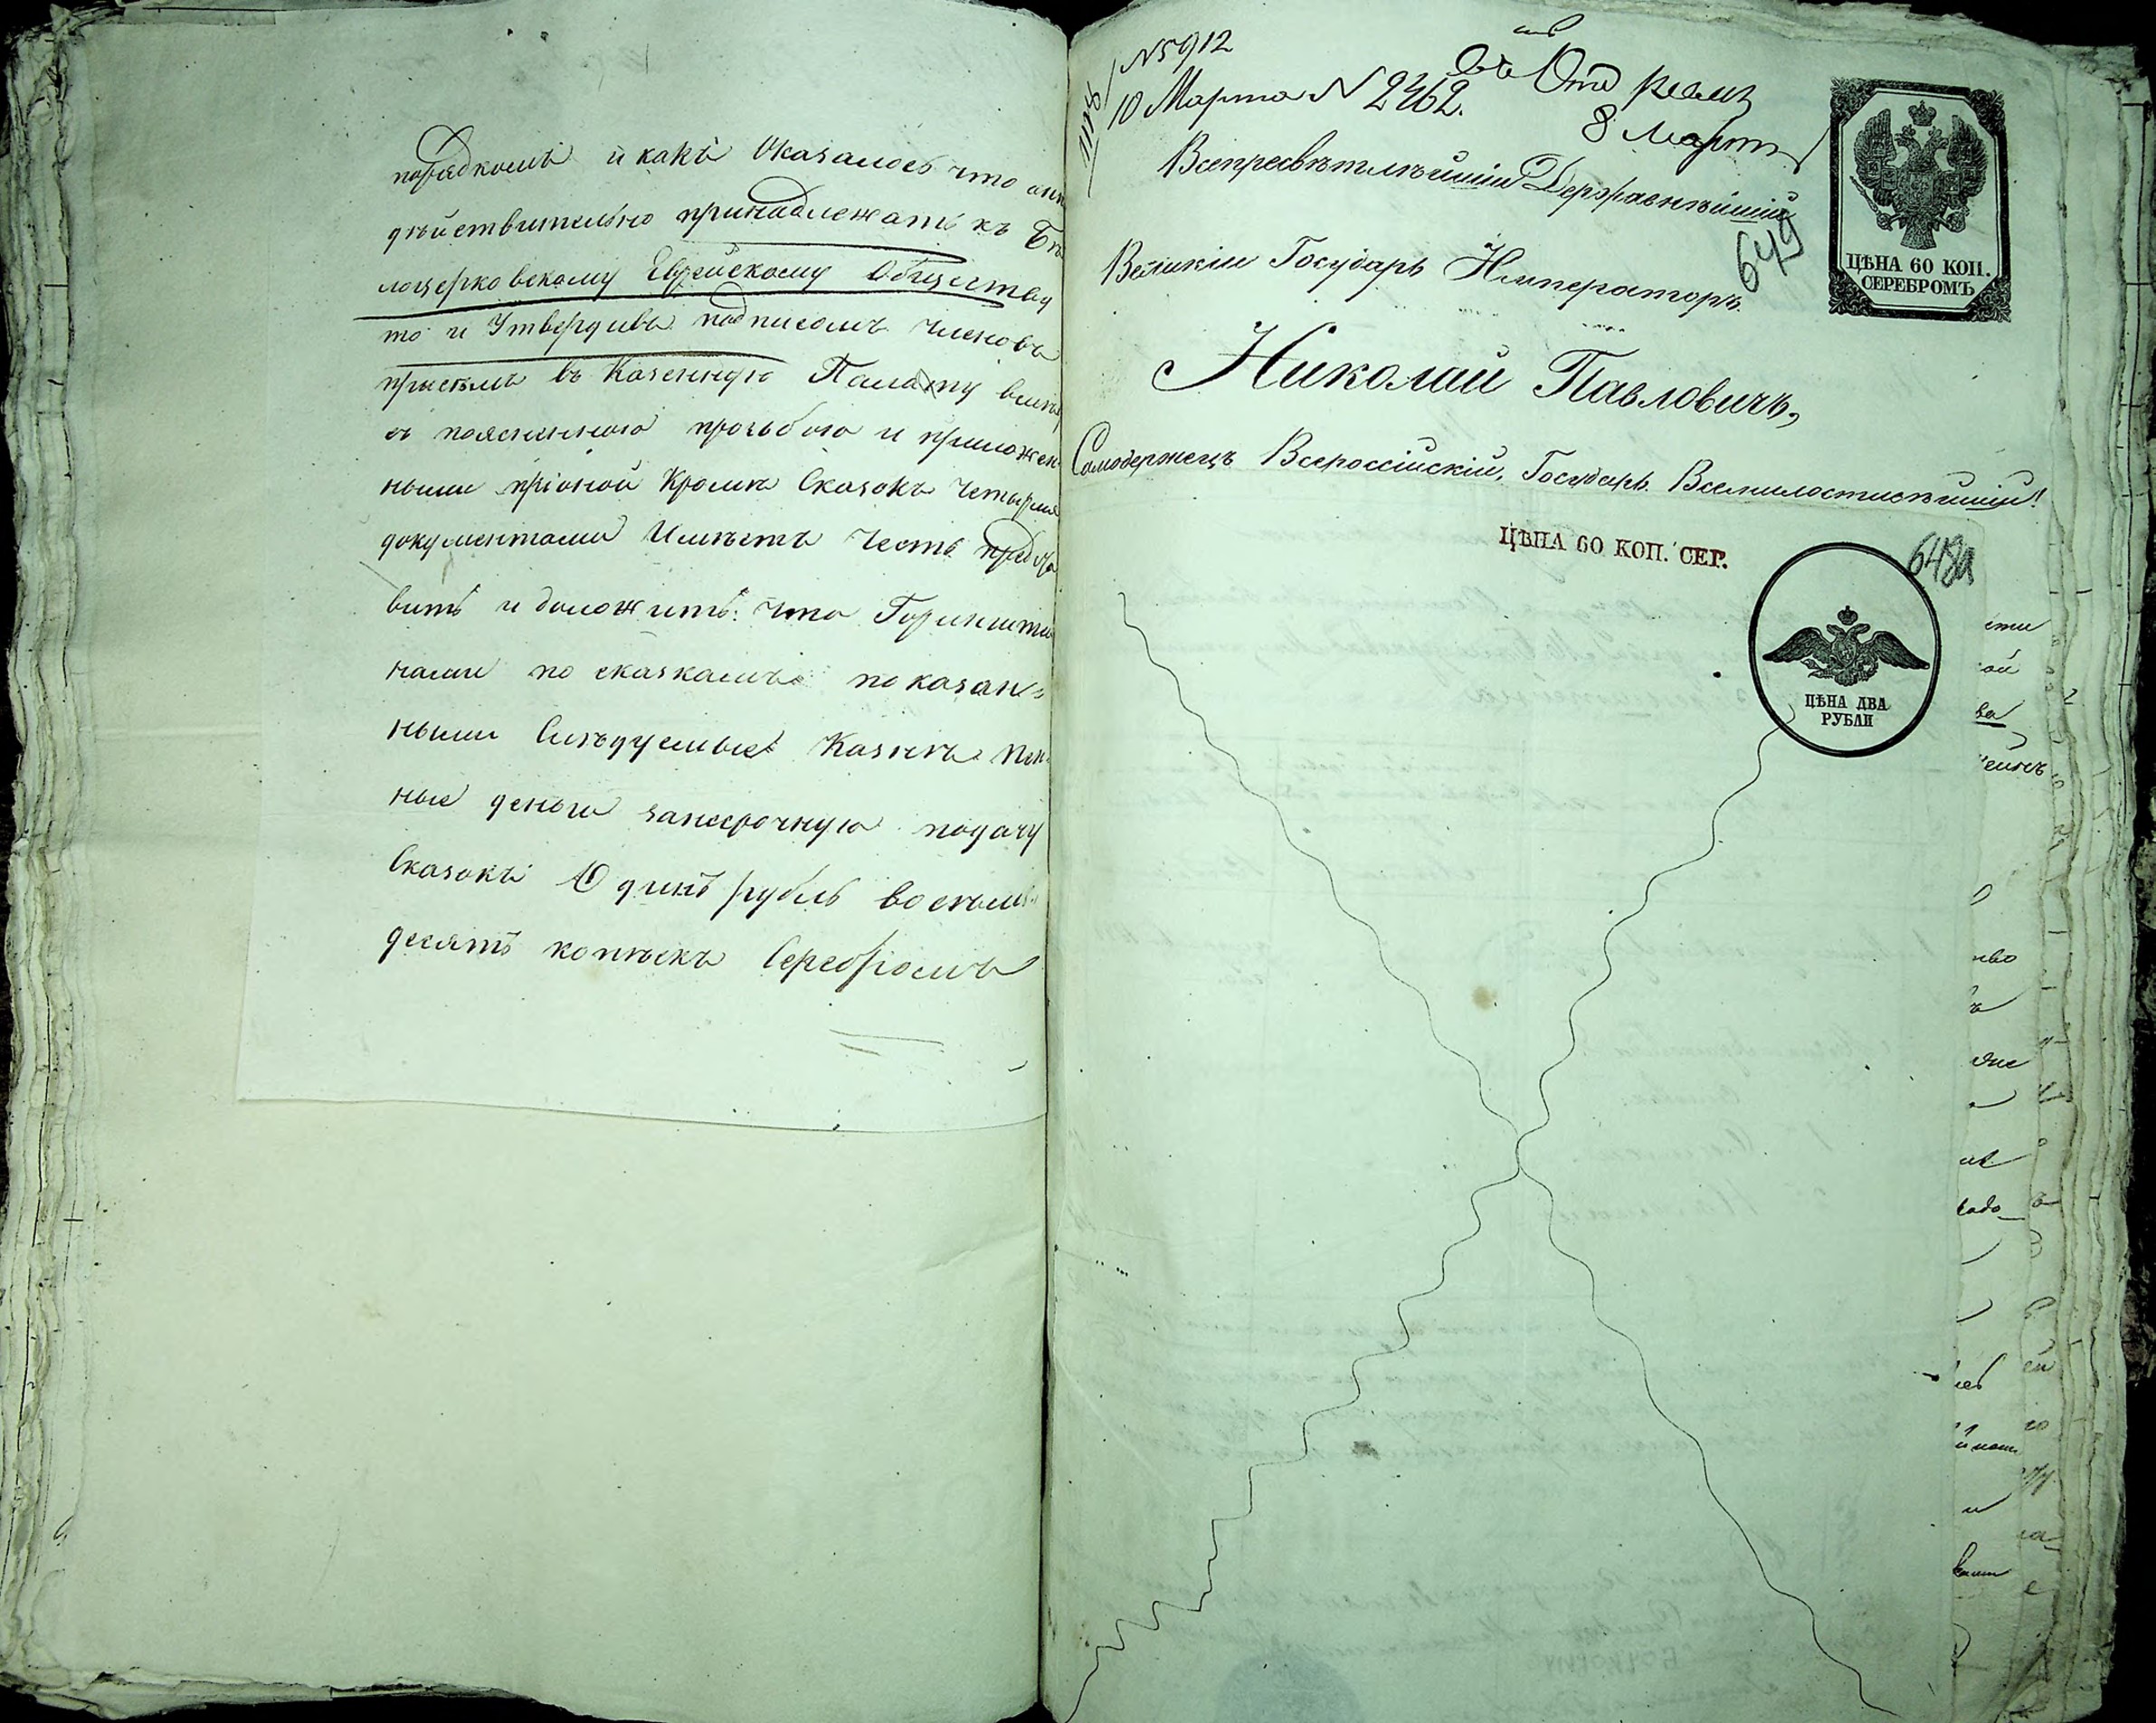 порядкомъ и какъ Оказалось что они
дѣйствительно принадлежатъ къ Бѣ
лоцерковскому Еврейскому Обществу
то и Утвердивъ подписомъ членовъ
въ Казенную Палату
съ поясненною прозьбою и приложен
ными при оной Кромѣ Сказокъ четырмя
документами Имѣетъ Честь предста
вить и доложить: что
нами по сказкамъ показан=
ными Слѣдуемые Казнѣ пен
ные деньги занесрочную подачу
Сказокъ Одинъ рубль восемь
десятъ копѣекъ Серебромъ
N5912
10 Марта N 2462.
8 Марта
Всепресвѣтлѣйшій Державнѣйшій
649
Великій Государь Императоръ
Николай Павловичъ,
Самодержецъ Всероссійскій, Государь Всемилостивѣйшій!
ЦѢНА 60 КОП.
СЕРЕБРОМЪ
ЦѢНА 60 КОП. СЕР.
648а
ЦѢНА ДВА
РУБЛИ